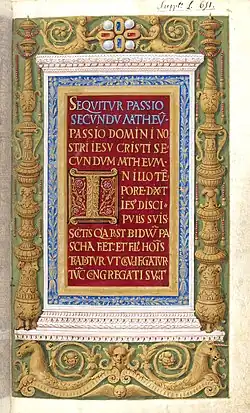 Suppl. L. 651.
SEQVITVR PASSIO
SECVNDV MATHEV
PASSIO DOMINI NO
STRI IESV CRISTI SE
CVNDVM MTHEVM
IN ILLO TE
PORE DXT
IES DISCI
PVLIS SVIS
SCTIS QIA PST BIDVV PA
SCHA FIET ET FIL HOIS
TRADITVR VT CVCIFIGATVR
TVC CNGREGATI SVNT